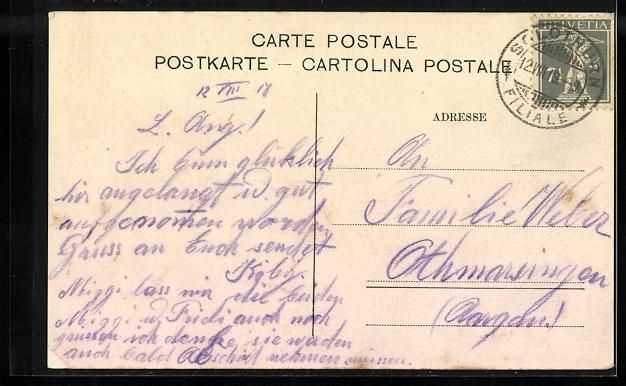 CARTE POSTALE
POSTKARTE — CARTOLINA POSTALE
HELVETIA
7½
SOLOTHURN
12.VIII.18
FILIALE
12 VIII 18
L. Ang.!
Ich bim glücklich
hir angelangt u. gut
aufgenomen worden
Gruss an Euch sendet
Miggi lass mir die beiden
Miggi u. Fridi auch noch
grüssen ich denke, sie werden
auch bald Abschid nehmen müssen.
ADRESSE
An
Familie Weber
Othmarsingen
(Aargau)